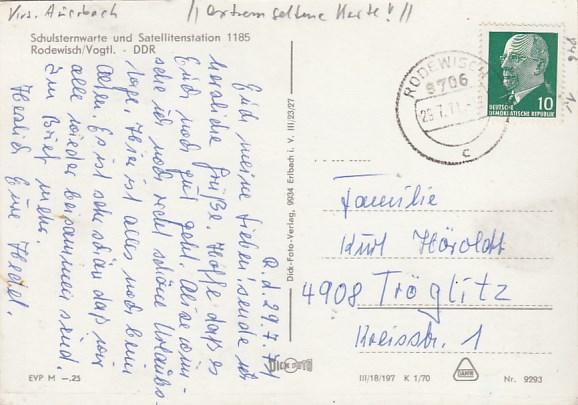 Krs. Auerbach
// extrem seltene Karte! //
Schulsternwarte und Satellitenstation 1185
Rodewisch/Vogtl. - DDR
R. d. 29.7.71
Euch meine Lieben sende ich
herzliche Grüße. Hoffe daß es
Euch noch gut geht. Also wün-
sche ich noch recht schöne Urlaubs-
tage. Hier ist alles noch beim
alten. Es ist sehr schön daß wir
alle wieder beisammen sind.
Im Brief mehr.
Herzlich Eure
Dick-Foto-Verlag, 9934 Erlbach i. V. III/23/27
DICK FOTO
RODEWISCH
9706
29.7.71
c
DEUTSCHE
DEMOKRATISCHE REPUBLIK
10
Familie
Kurt Höroldt
4908 Tröglitz
Kreisstr. 1
EVP M -.25
III/18/197 K 1/70
Nr. 9293